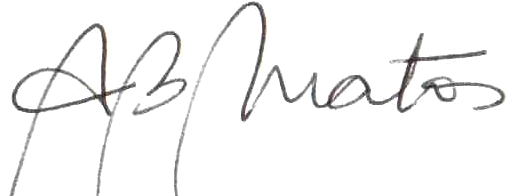 AB Matos